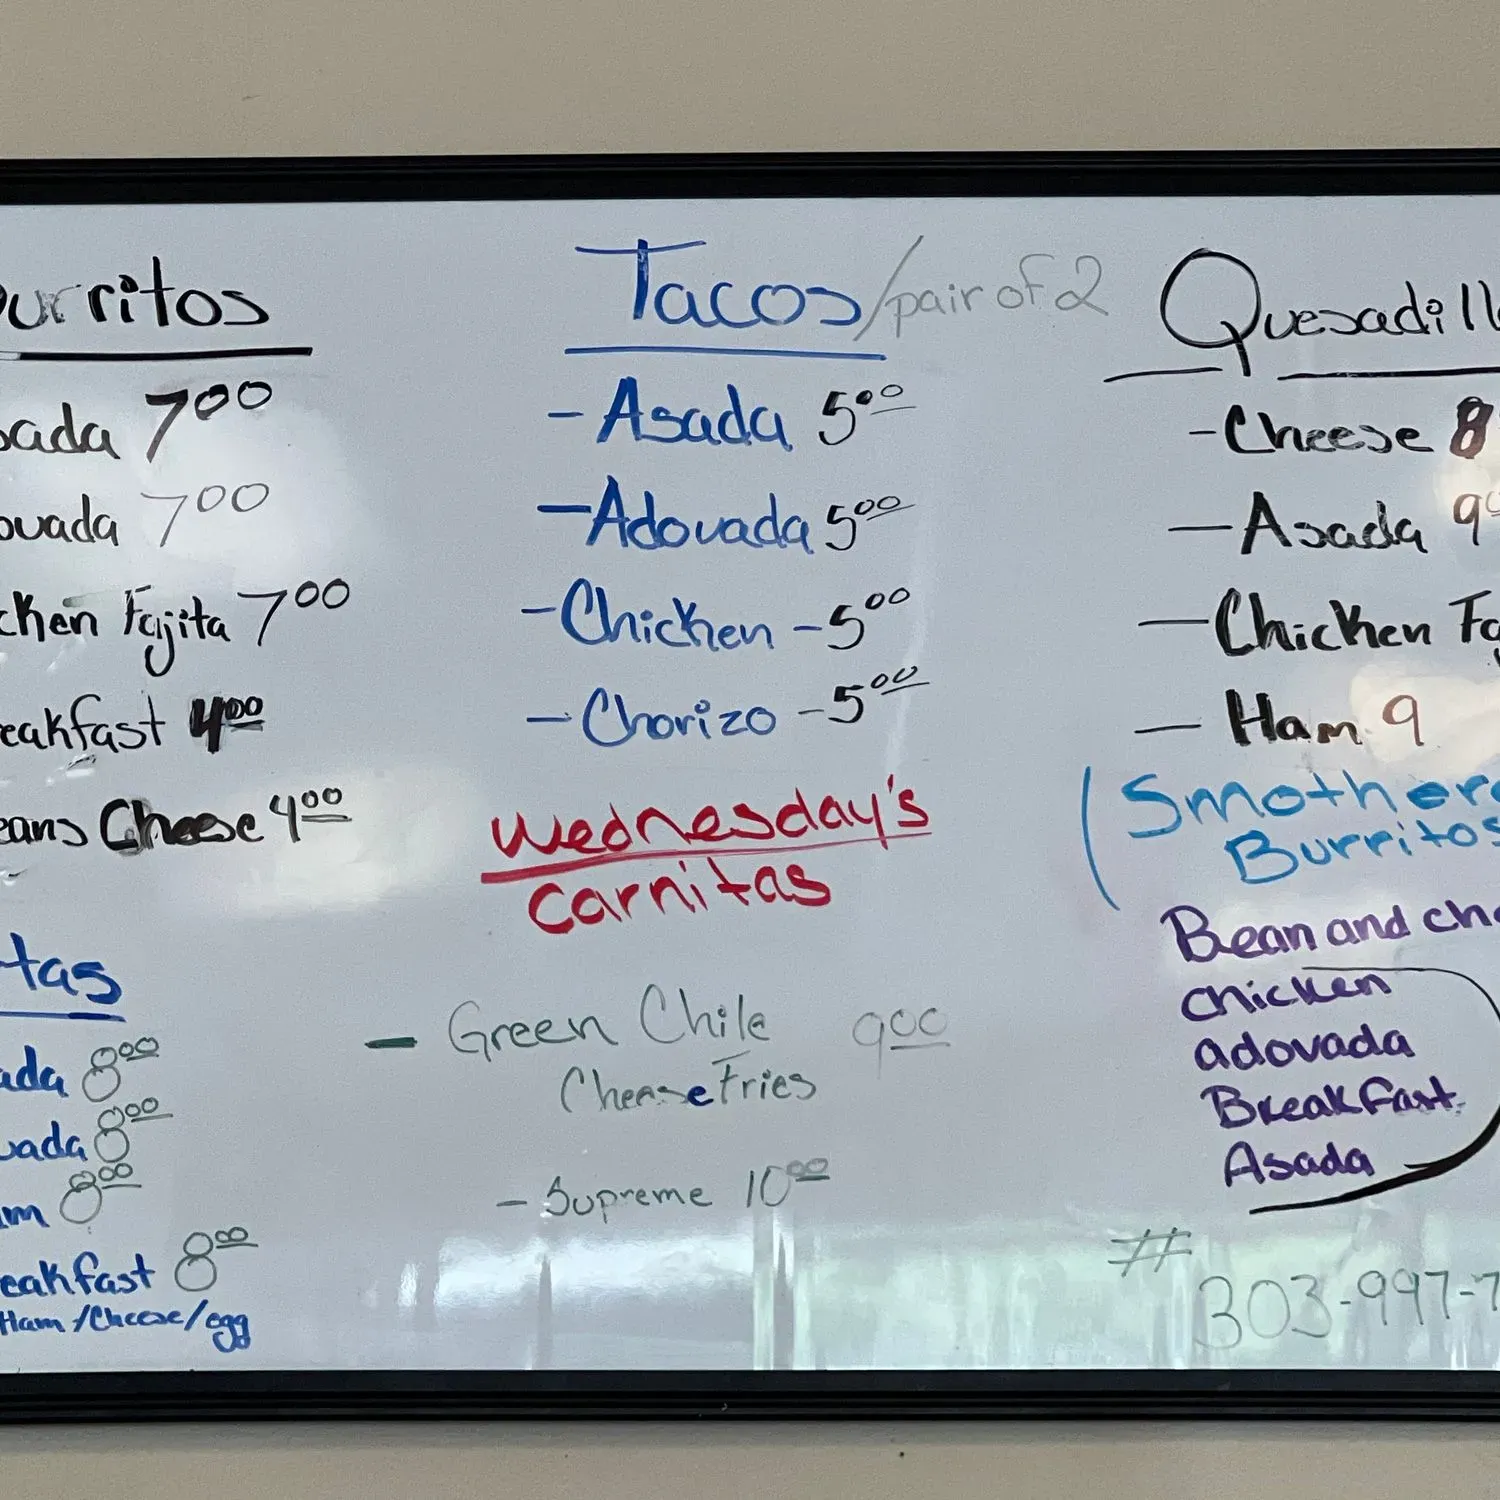 urritos
sada 7.00
ovada 7.00
cken Fajita 7.00
eakfast 4.00
eans Cheese 4.00
tas
ada 8.00
vada 8.00
am 8.00
eakfast 8.00
Ham/Cheese/egg
Tacos/pair of 2
- Asada 5.00
- Adovada 5.00
- Chicken - 5.00
- Chorizo - 5.00
Wednesday's
Carnitas
- Green Chile 9.00
Cheese Fries
- Supreme 10.00
Quesadill
- Cheese 8
- Asada 9
- Chicken Fa
- Ham 9
(Smothere
Burritos
Bean and che
chicken
adovada
Breakfast
Asada
#
303-997-7